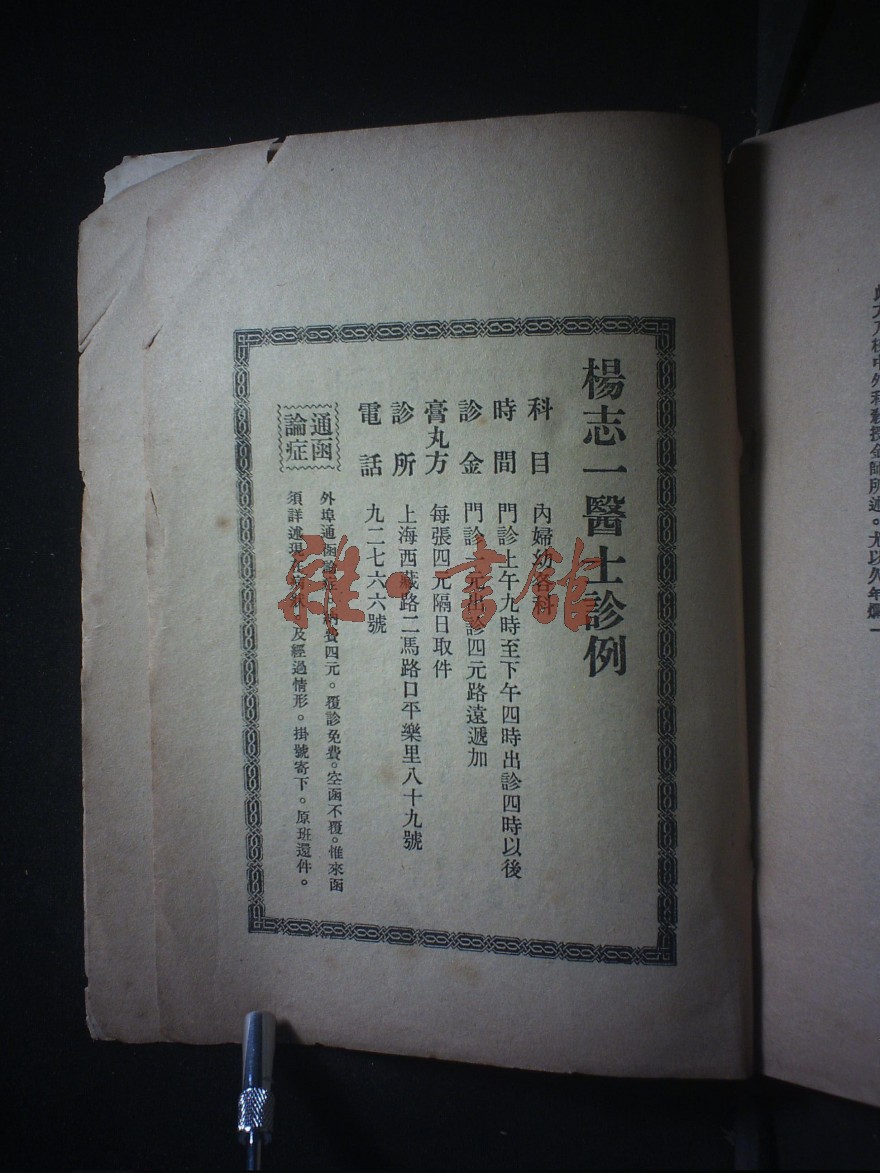 楊志一醫士診例
科目　內婦幼各科
時間　門診上午九時至下午四時出診四時以後
診金　門診一元出診四元路遠遞加
膏丸方　每張四元隔日取件
診所　上海西藏路二馬路口平樂里八十九號
電話　九二七六六號
通函
論症
外埠通函論症。納費四元。覆診免費。空函不覆。惟來函
須詳述現在病狀。及經過情形。掛號寄下。原班還件。
雜·書館
金師所述。尤以久年爛